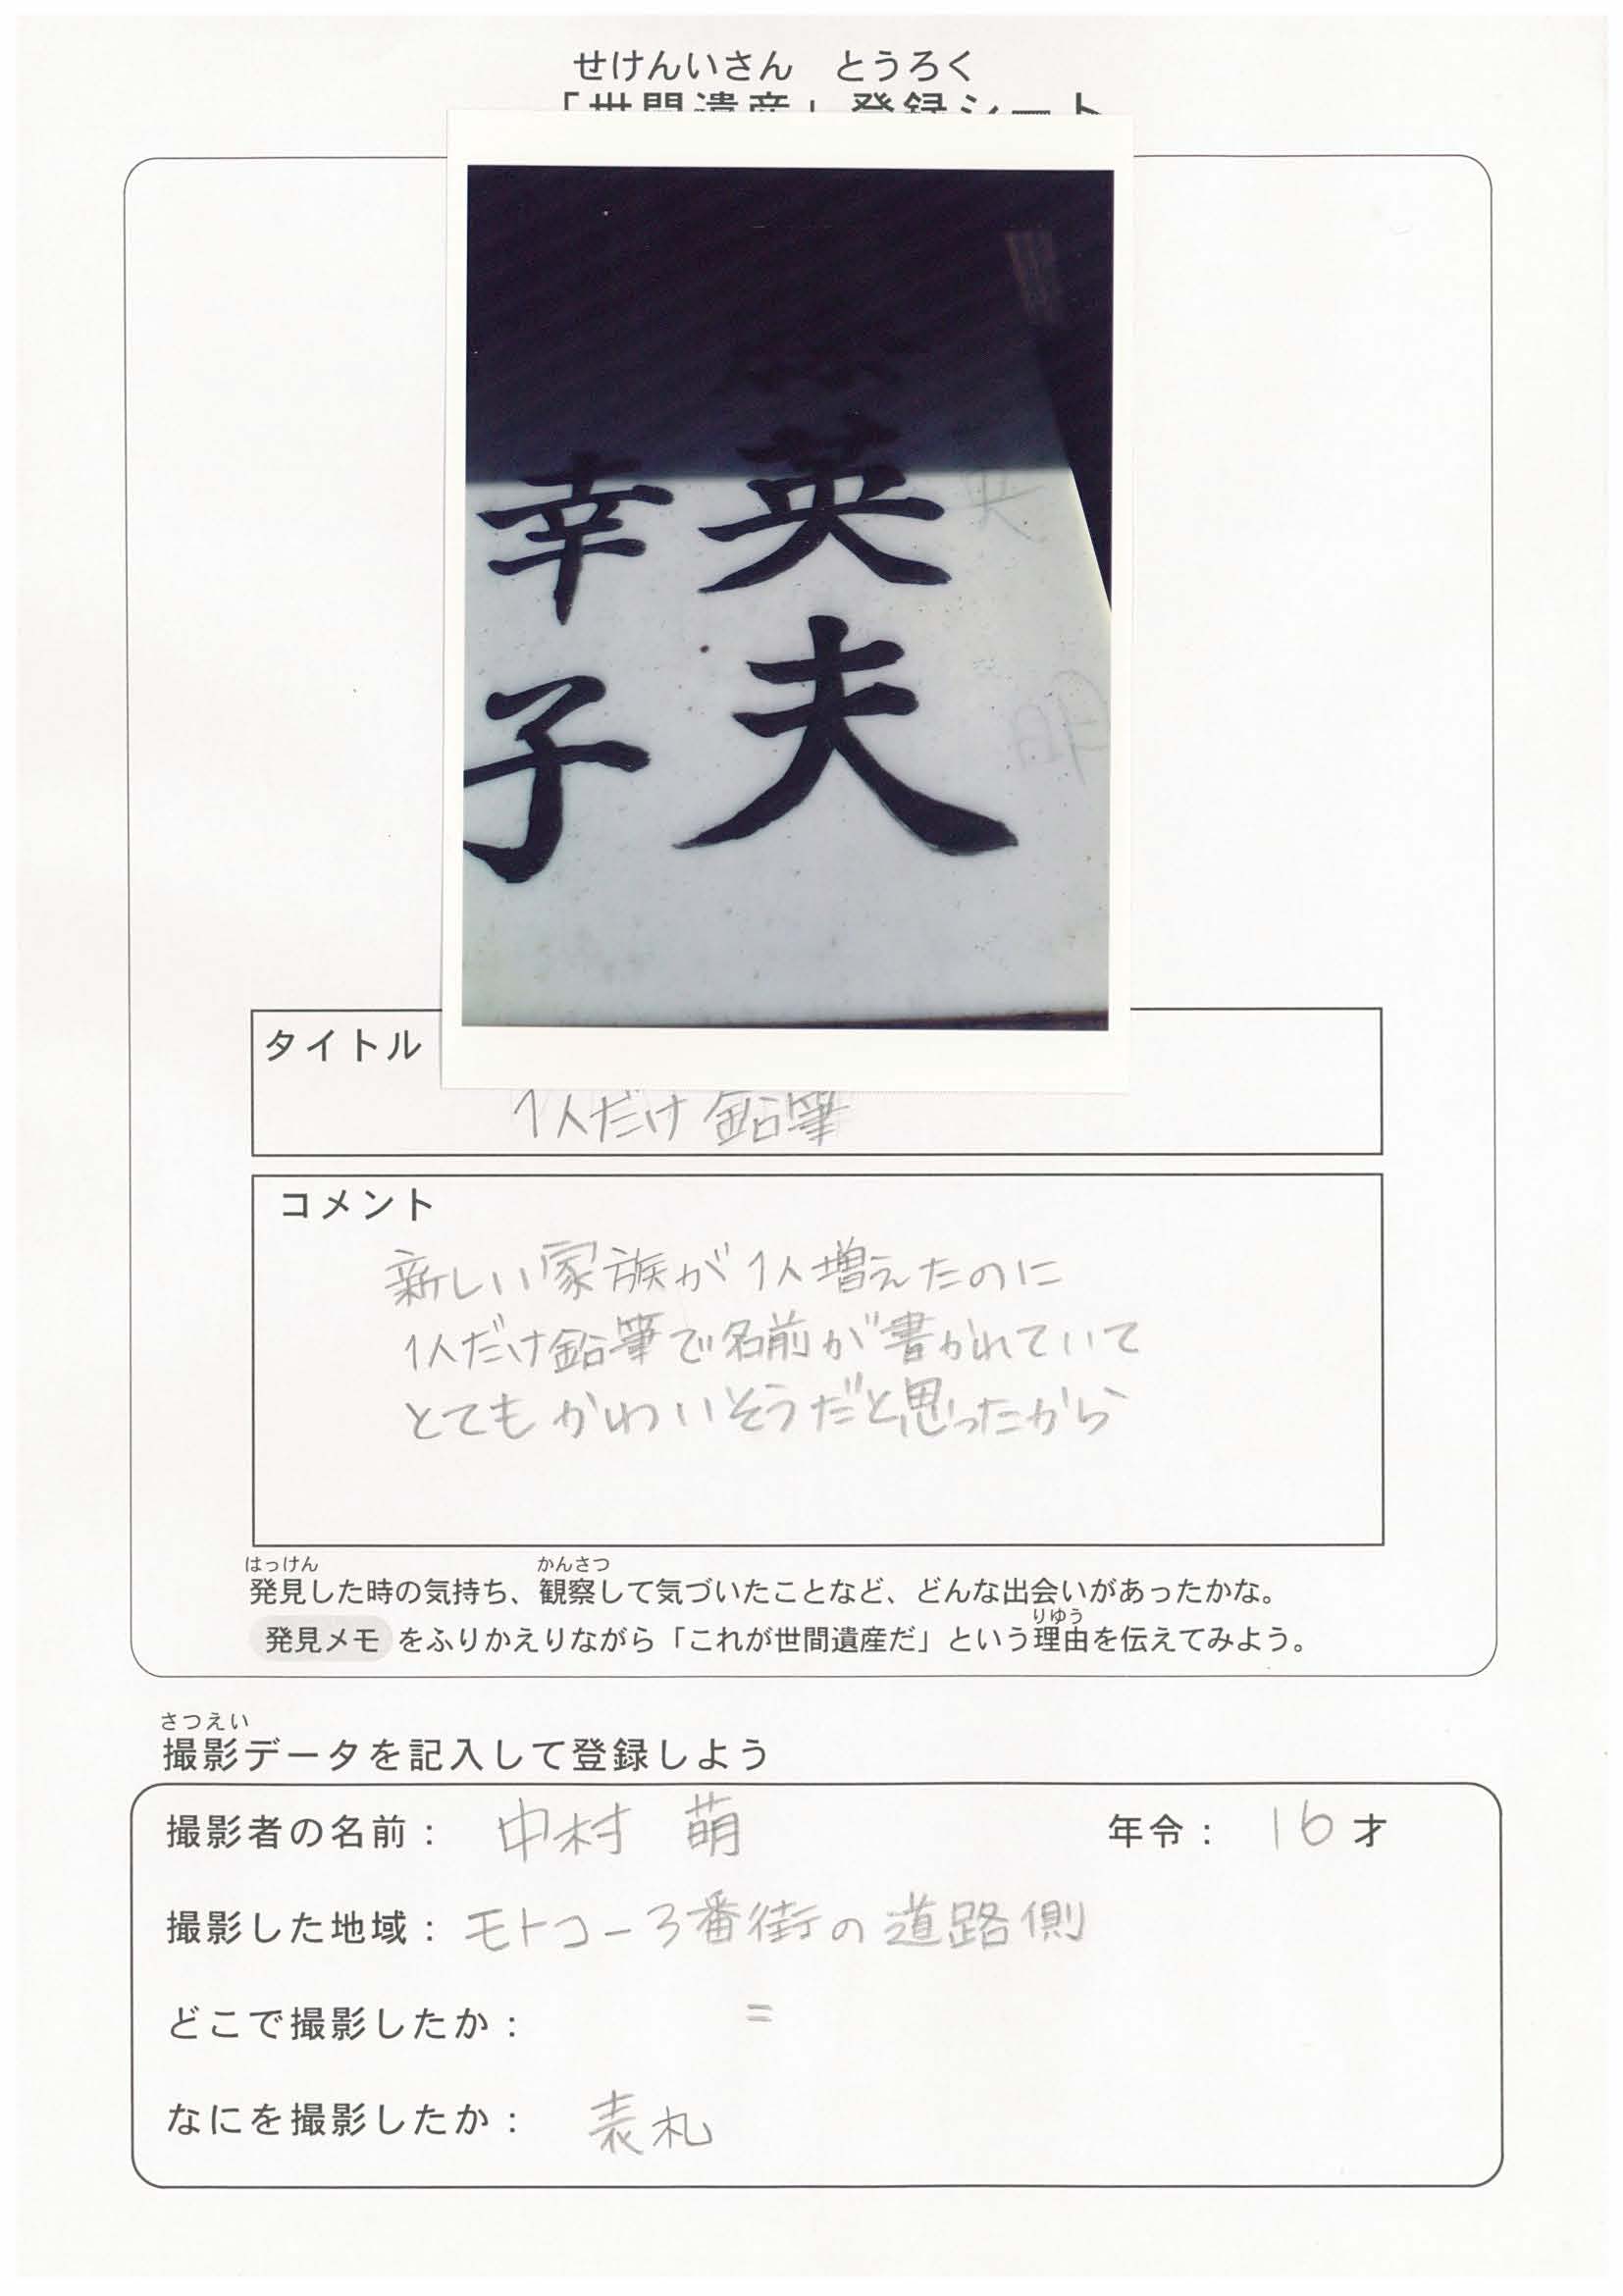 せけんいさん とうろく
「世間遺産」登録シート
英夫
幸子
タイトル
1人だけ鉛筆
コメント
新しい家族が1人増えたのに
1人だけ鉛筆で名前が書かれていて
とてもかわいそうだと思ったから
はっけん かんさつ
発見した時の気持ち、観察して気づいたことなど、どんな出会いがあったかな。
りゆう
発見メモ をふりかえりながら「これが世間遺産だ」という理由を伝えてみよう。
さつえい
撮影データを記入して登録しよう
撮影者の名前： 中村 萌 年令： 16才
撮影した地域： モトコー3番街の道路側
どこで撮影したか： =
なにを撮影したか： 表札